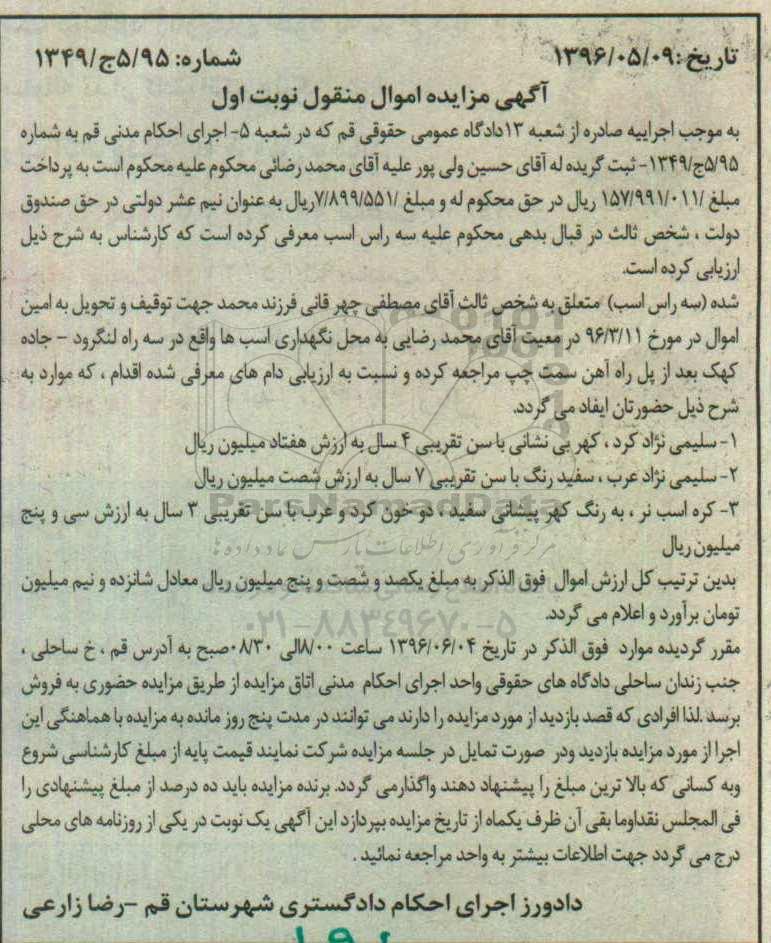 تاریخ :۱۳۹۶/۰۵/۰۹ شماره: ۵/۹۵ج/۱۳۴۹
آگهی مزایده اموال منقول نوبت اول
به موجب اجراییه صادره از شعبه ۱۳دادگاه عمومی حقوقی قم که در شعبه ۵- اجرای احکام مدنی قم به شماره
۵/۹۵ج/۱۳۴۹- ثبت گریده له آقای حسین ولی پور علیه آقای محمد رضائی محکوم علیه محکوم است به پرداخت
مبلغ /۱۵۷/۹۹۱/۰۱۱ ریال در حق محکوم له و مبلغ /۷/۸۹۹/۵۵۱ریال به عنوان نیم عشر دولتی در حق صندوق
دولت ، شخص ثالث در قبال بدهی محکوم علیه سه راس اسب معرفی کرده است که کارشناس به شرح ذیل
ارزیابی کرده است.
شده (سه راس اسب) متعلق به شخص ثالث آقای مصطفی چهر قانی فرزند محمد جهت توقیف و تحویل به امین
اموال در مورخ ۹۶/۳/۱۱ در معیت آقای محمد رضایی به محل نگهداری اسب ها واقع در سه راه لنگرود - جاده
کهک بعد از پل راه آهن سمت چپ مراجعه کرده و نسبت به ارزیابی دام های معرفی شده اقدام ، که موارد به
شرح ذیل حضورتان ایفاد می گردد.
۱- سلیمی نژاد کرد ، کهر بی نشانی با سن تقریبی ۴ سال به ارزش هفتاد میلیون ریال
۲- سلیمی نژاد عرب ، سفید رنگ با سن تقریبی ۷ سال به ارزش شصت میلیون ریال
ParsNamadData
۳- کره اسب نر ، به رنگ کهر پیشانی سفید ، دو خون کرد و عرب با سن تقریبی ۳ سال به ارزش سی و پنج
میلیون ریال
مرکز فرآوری اطلاعات پارس نماد داده ها
بدین ترتیب کل ارزش اموال فوق الذکر به مبلغ یکصد و شصت و پنج میلیون ریال معادل شانزده و نیم میلیون
تومان برآورد و اعلام می گردد.
۰۲۱-۸۸۳۴۹۶۷۰-۵
مقرر گردیده موارد فوق الذکر در تاریخ ۱۳۹۶/۰۶/۰۴ ساعت ۸/۰۰الی ۰۸/۳۰صبح به آدرس قم ، خ ساحلی ،
جنب زندان ساحلی دادگاه های حقوقی واحد اجرای احکام مدنی اتاق مزایده از طریق مزایده حضوری به فروش
برسد .لذا افرادی که قصد بازدید از مورد مزایده را دارند می توانند در مدت پنج روز مانده به مزایده با هماهنگی این
اجرا از مورد مزایده بازدید ودر صورت تمایل در جلسه مزایده شرکت نمایند قیمت پایه از مبلغ کارشناسی شروع
وبه کسانی که بالا ترین مبلغ را پیشنهاد دهند واگذارمی گردد. برنده مزایده باید ده درصد از مبلغ پیشنهادی را
فی المجلس نقداوما بقی آن ظرف یکماه از تاریخ مزایده بپردازد این آگهی یک نوبت در یکی از روزنامه های محلی
درج می گردد جهت اطلاعات بیشتر به واحد مراجعه نمائید .
دادورز اجرای احکام دادگستری شهرستان قم -رضا زارعی